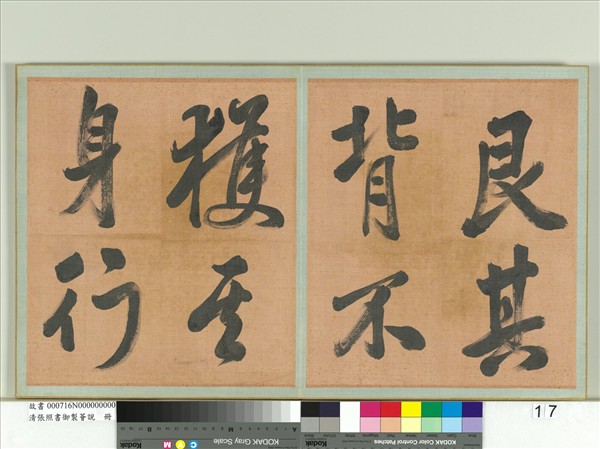 艮其
背不
獲其
身行
故書 000716N000000000
清張照書御製薈說 冊
KODAK Gray Scale
Kodak
KODAK Color Control Patches
17